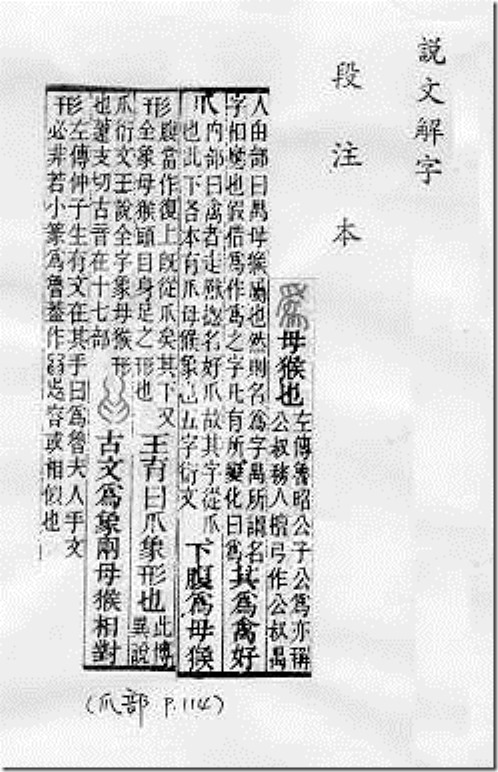 說文解字
段注本
母猴也
左傳魯昭公子公爲亦稱
公叔務人檀弓作公叔禺
人由部曰禺母猴屬也然則名爲字禺所謂名
字相應也假借爲作爲之字凡有所變化曰爲
其爲禽好
爪
内部曰禽者走獸緫名好爪故其字從爪
也此下各本有爪母猴象也五字衍文
下腹爲母猴
形
腹當作復上旣從爪矣其下又
全象母猴頭目身足之形也
王育曰爪象形也
此博
異說
爪衍文王說全字象母猴形
也薳支切古音在十七部
古文爲象兩母猴相對
形
左傳仲子生有文在其手曰爲魯夫人手文
必非若小篆爲魯葢作容或相似也
(爪部 P.114)